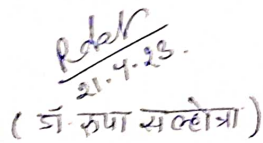 21.4.23.
(डॉ. रुपा सल्होत्रा)